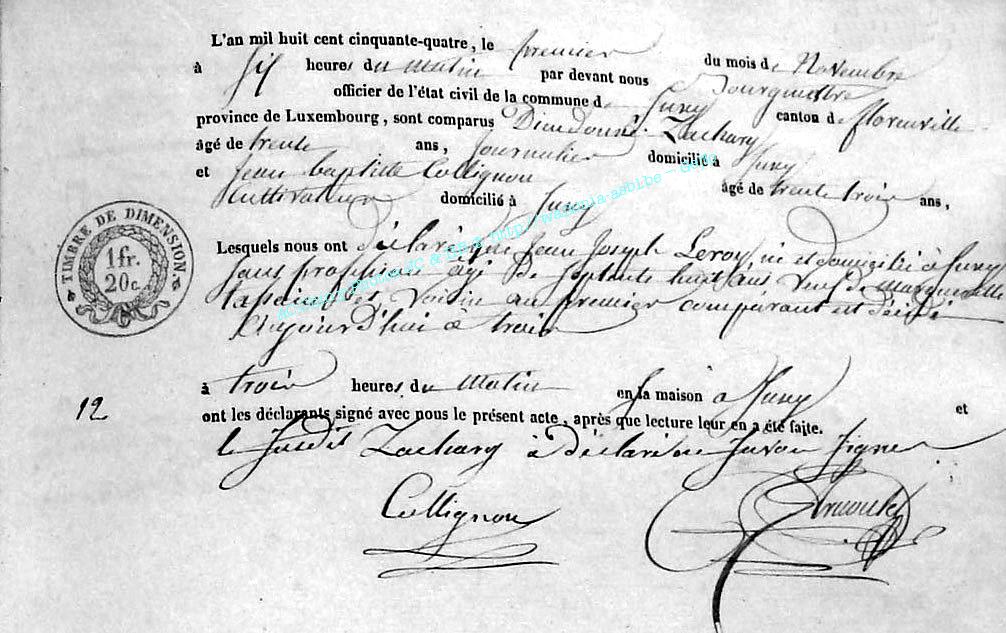 L'an mil huit cent cinquante-quatre, le premier du mois de Novembre
à six heures du matin par devant nous Bourgmestre
officier de l'état civil de la commune de Suxy canton de florenville
province de Luxembourg, sont comparus Dieudonné Zachary
âgé de trente ans, journalier domicilié à Suxy
et Jean baptiste Collignon âgé de trente trois ans,
Cultivateur domicilié à Suxy
TIMBRE DE DIMENSION
1 fr.
20 c.
Lesquels nous ont déclaré que Jean Joseph Leroy, né et domicilié à Suxy
sans profession agé de septante huit ans veuf de Marguerite
et voisin au premier comparant est décédé
aujourd'hui à trois
à trois heures du matin en sa maison à Suxy
12
ont les déclarants signé avec nous le présent acte, après que lecture leur en a été faite. et
le susdit Zachary à déclaré ne savoir signer
Collignon